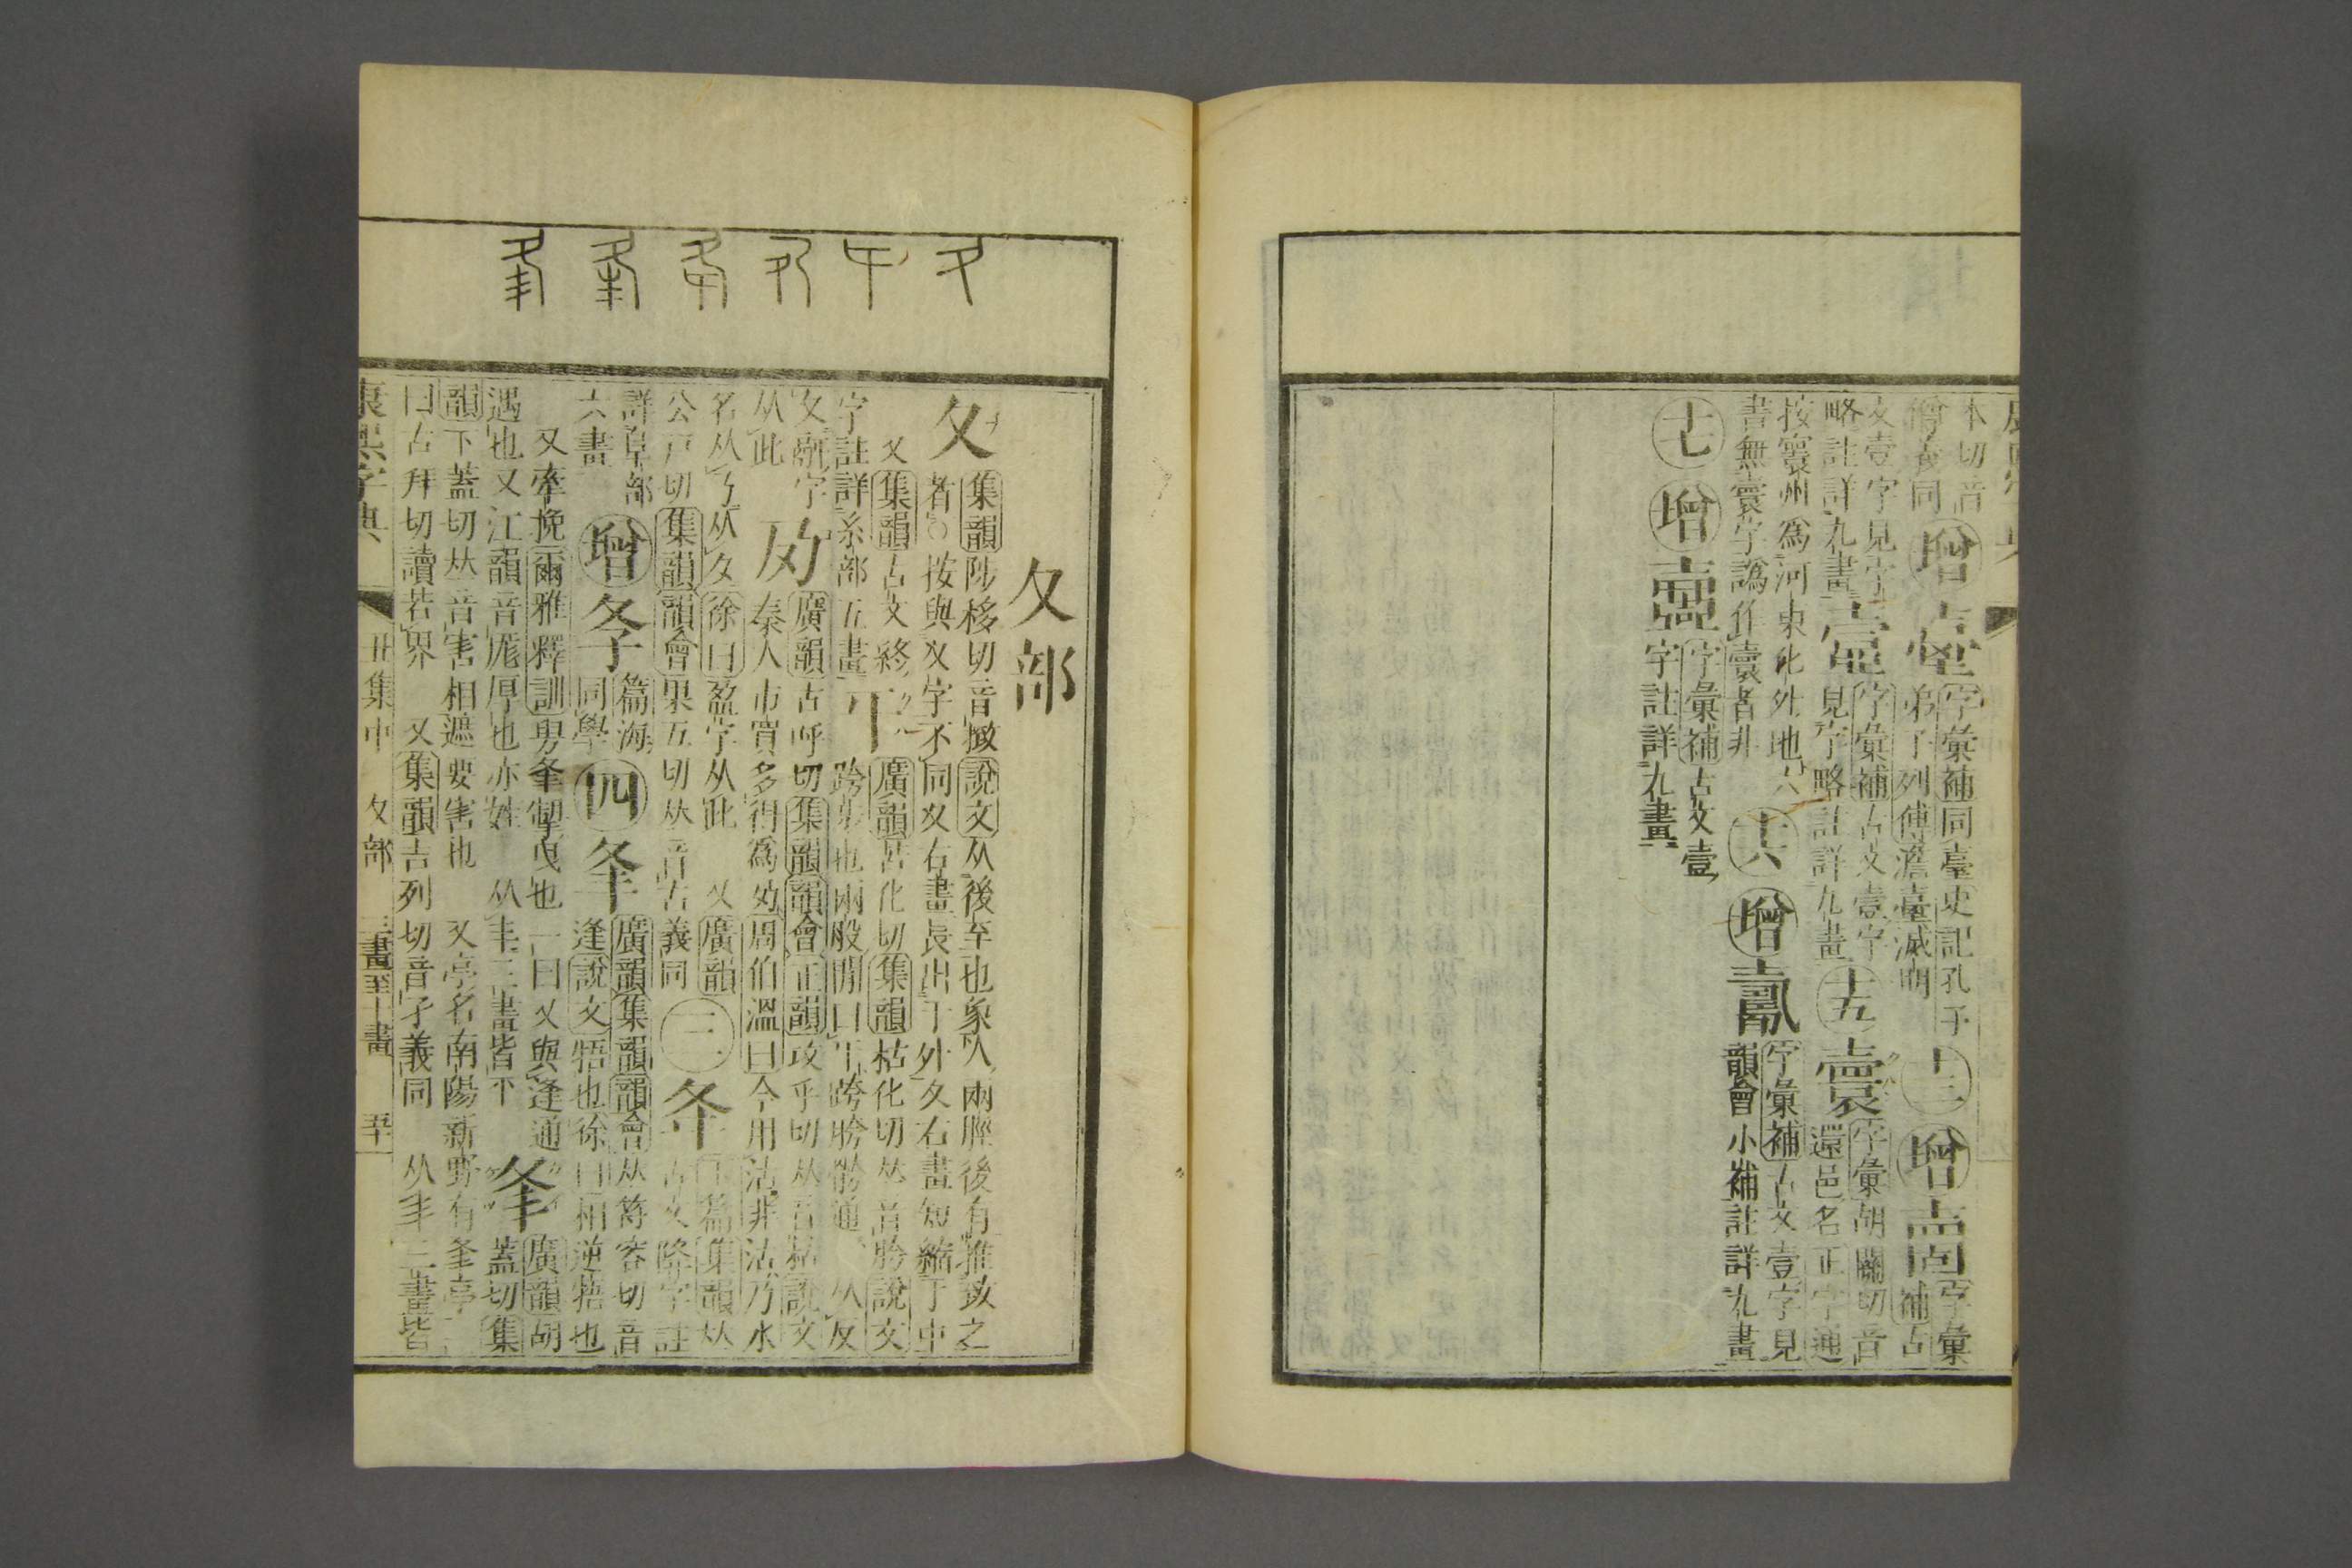 本切音
僧袞同
增
字彙補同臺史記孔子
弟子列傳澹臺滅明
十三
增
字彙
補古
文壹字見字
略註詳九畫
字彙補古文壹字
見字略註詳九畫
十五
字彙胡關切音
還邑名正字通
按寰州爲河東化外地
書無寰字譌作者非
十六
增
字彙補古文壹字見
韻會小補註詳九畫
十七
增
字彙補古文壹
字註詳九畫
夂部
夂
集韻陟移切音撴說文从後至也象人兩脛後有推致之
者○按與夊字不同夊右畫長出于外夂右畫短縮于中
又集韻古文終
字註詳糸部五畫
㐄
廣韻苦化切集韻枯化切𠀤音胯說文
跨步也兩股閒曰㐄跨胯骻通 从反
夂𣂁字
从此
夃
廣韻古呼切集韻韻會正韻攻乎切𠀤音姑說文
秦人市買多得爲夃周伯溫曰今用沽非沽乃水
名从乃从夂徐曰盈字从此 又廣韻
公戸切集韻韻會果五切𠀤音古義同
三
夅
玉篇集韻𠀤
古文降字註
詳阜部
六畫
增
篇海
同學
四
夆
廣韻集韻韻會𠀤符容切音
逢說文牾也徐曰相逆牾也
又牽挽爾雅釋訓甹夆掣曳也 一曰又與逢通
遇也又江韻音厖厚也亦姓 从丰三畫皆平
夆
廣韻胡
蓋切集
韻下蓋切𠀤音害相遮要害也 又亭名南陽新野有夆亭
曰古拜切讀若界 又集韻吉列切音孑義同 从丯三畫皆
康熙字典
丑集中 夂部